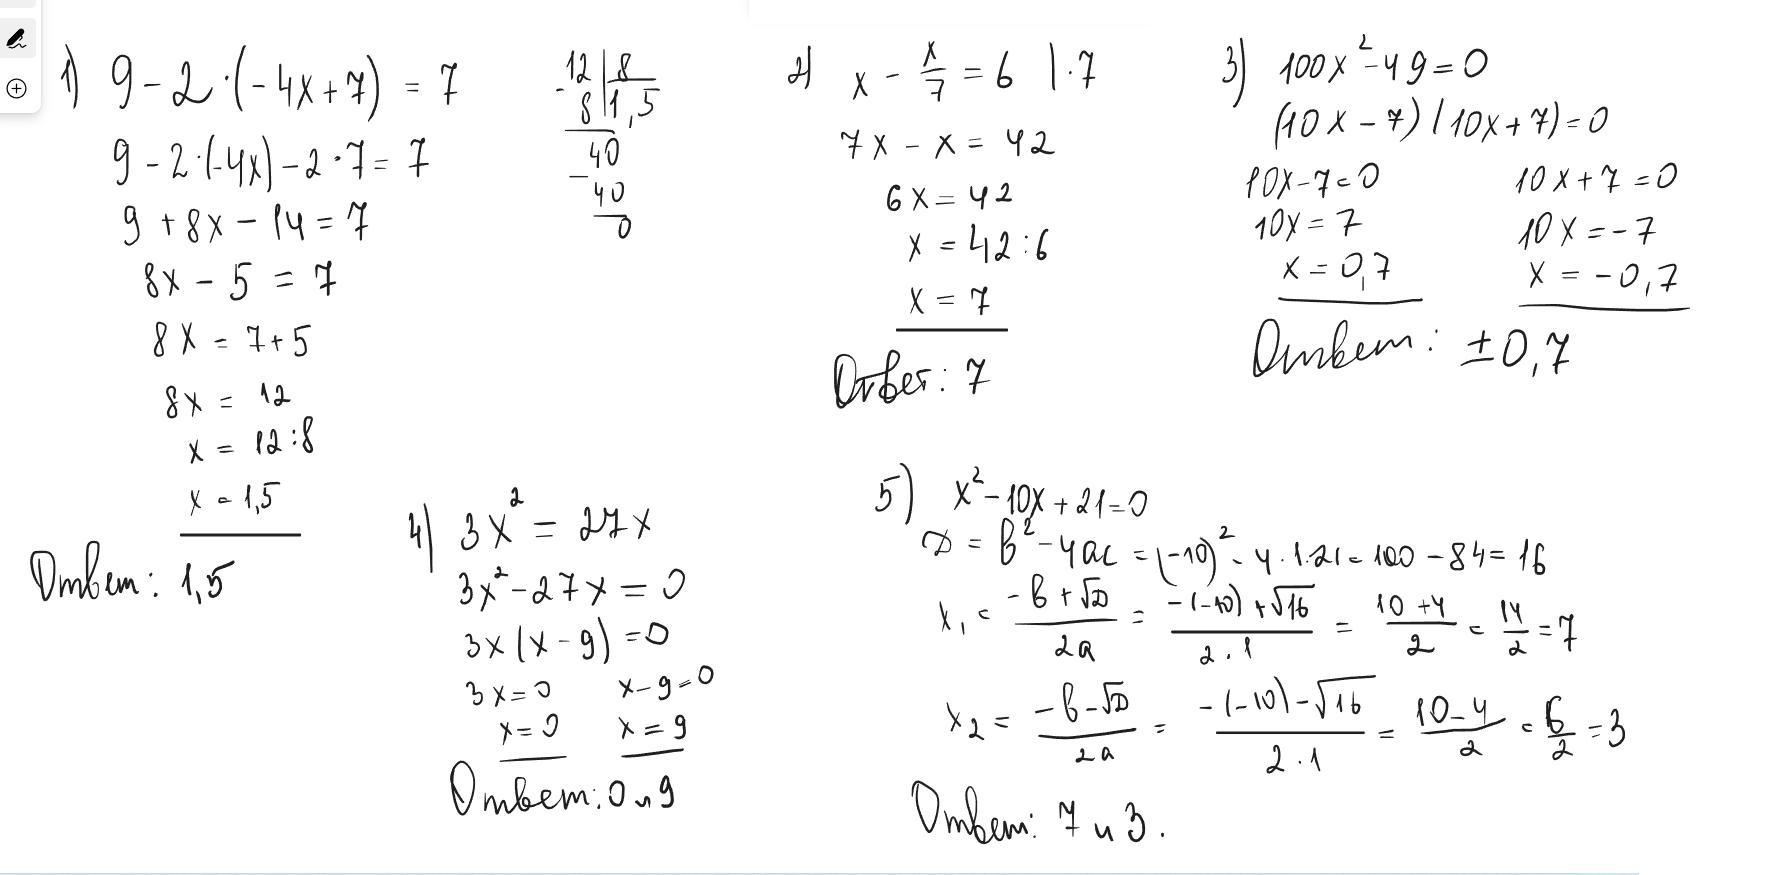 1) 9 - 2 · (- 4x + 7) = 7
9 - 2 · (-4x) - 2 · 7 = 7
9 + 8x - 14 = 7
8x - 5 = 7
8x = 7 + 5
8x = 12
x = 12 : 8
x = 1,5
Ответ: 1,5
- 12 | 8
8 | 1,5
- 40
40
0
2) x - x/7 = 6 | · 7
7x - x = 42
6x = 42
x = 42 : 6
x = 7
Ответ: 7
3) 100x² - 49 = 0
(10x - 7) (10x + 7) = 0
10x - 7 = 0 10x + 7 = 0
10x = 7 10x = - 7
x = 0,7 x = - 0,7
Ответ: ± 0,7
4) 3x² = 27x
3x² - 27x = 0
3x (x - 9) = 0
3x = 0 x - 9 = 0
x = 0 x = 9
Ответ: 0 и 9
5) x² - 10x + 21 = 0
D = b² - 4ac = (-10)² - 4 · 1 · 21 = 100 - 84 = 16
x₁ = (-b + √D)/2a = (-(-10) + √16)/(2 · 1) = (10 + 4)/2 = 14/2 = 7
x₂ = (-b - √D)/2a = (-(-10) - √16)/(2 · 1) = (10 - 4)/2 = 6/2 = 3
Ответ: 7 и 3.